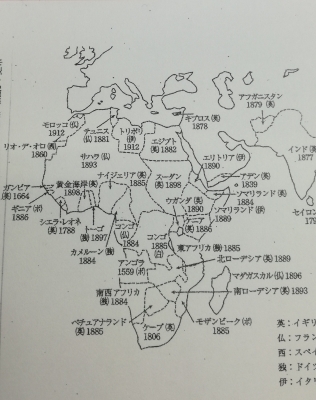 アフガニスタン
1879 (英)
モロッコ(仏)
1912
テュニス
(仏) 1881
トリポリ
(伊)
1912
キプロス(英)
1878
リオ・デ・オロ(西)
1860
エジプト
(英) 1882
インド(英)
1877
サハラ(仏)
1893
エリトリア(伊)
1890
アデン(英)
1839
ガンビア
(英) 1664
黄金海岸(英)
1898
ナイジェリア(英)
1885
スーダン
(英) 1898
ソマリランド(英)
1884
ギニア(ポ)
1886
ウガンダ(英)
1890
ソマリランド(伊)
1889
シエラ・レオネ
(英) 1788
トーゴ
(独) 1897
コンゴ(仏)
1884
コンゴ
1885
(白)
ケニア
(英) 1886
カメルーン(独)
1884
東アフリカ(独) 1885
アンゴラ
1559 (ポ)
北ローデシア(英) 1889
マダガスカル(仏) 1896
南西アフリカ
(独) 1884
南ローデシア(英) 1893
ベチュアナランド
(英) 1885
ケープ(英)
1806
モザンビーク(ポ)
1885
英:イギリ
仏:フラン
西:スペイ
独:ドイツ
伊:イタリ